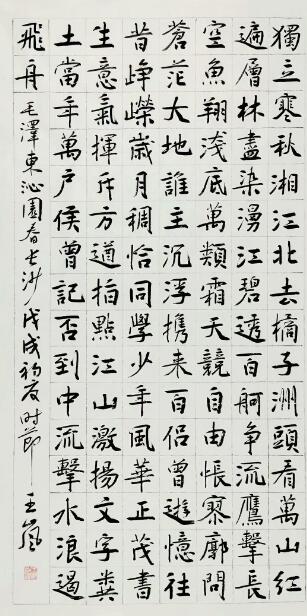 獨立寒秋湘江北去橘子洲頭看萬山紅
遍層林盡染漫江碧透百舸争流鷹擊長
空魚翔淺底萬類霜天競自由悵寥廓問
蒼茫大地誰主沉浮携来百侣曾遊憶往
昔崢嶸歲月稠恰同學少年風華正茂書
生意氣揮斥方遒指點江山激揚文字糞
土當年萬户侯曾記否到中流擊水浪遏
飛舟 毛澤東沁園春长沙 戊戌初夏时節 王嵐